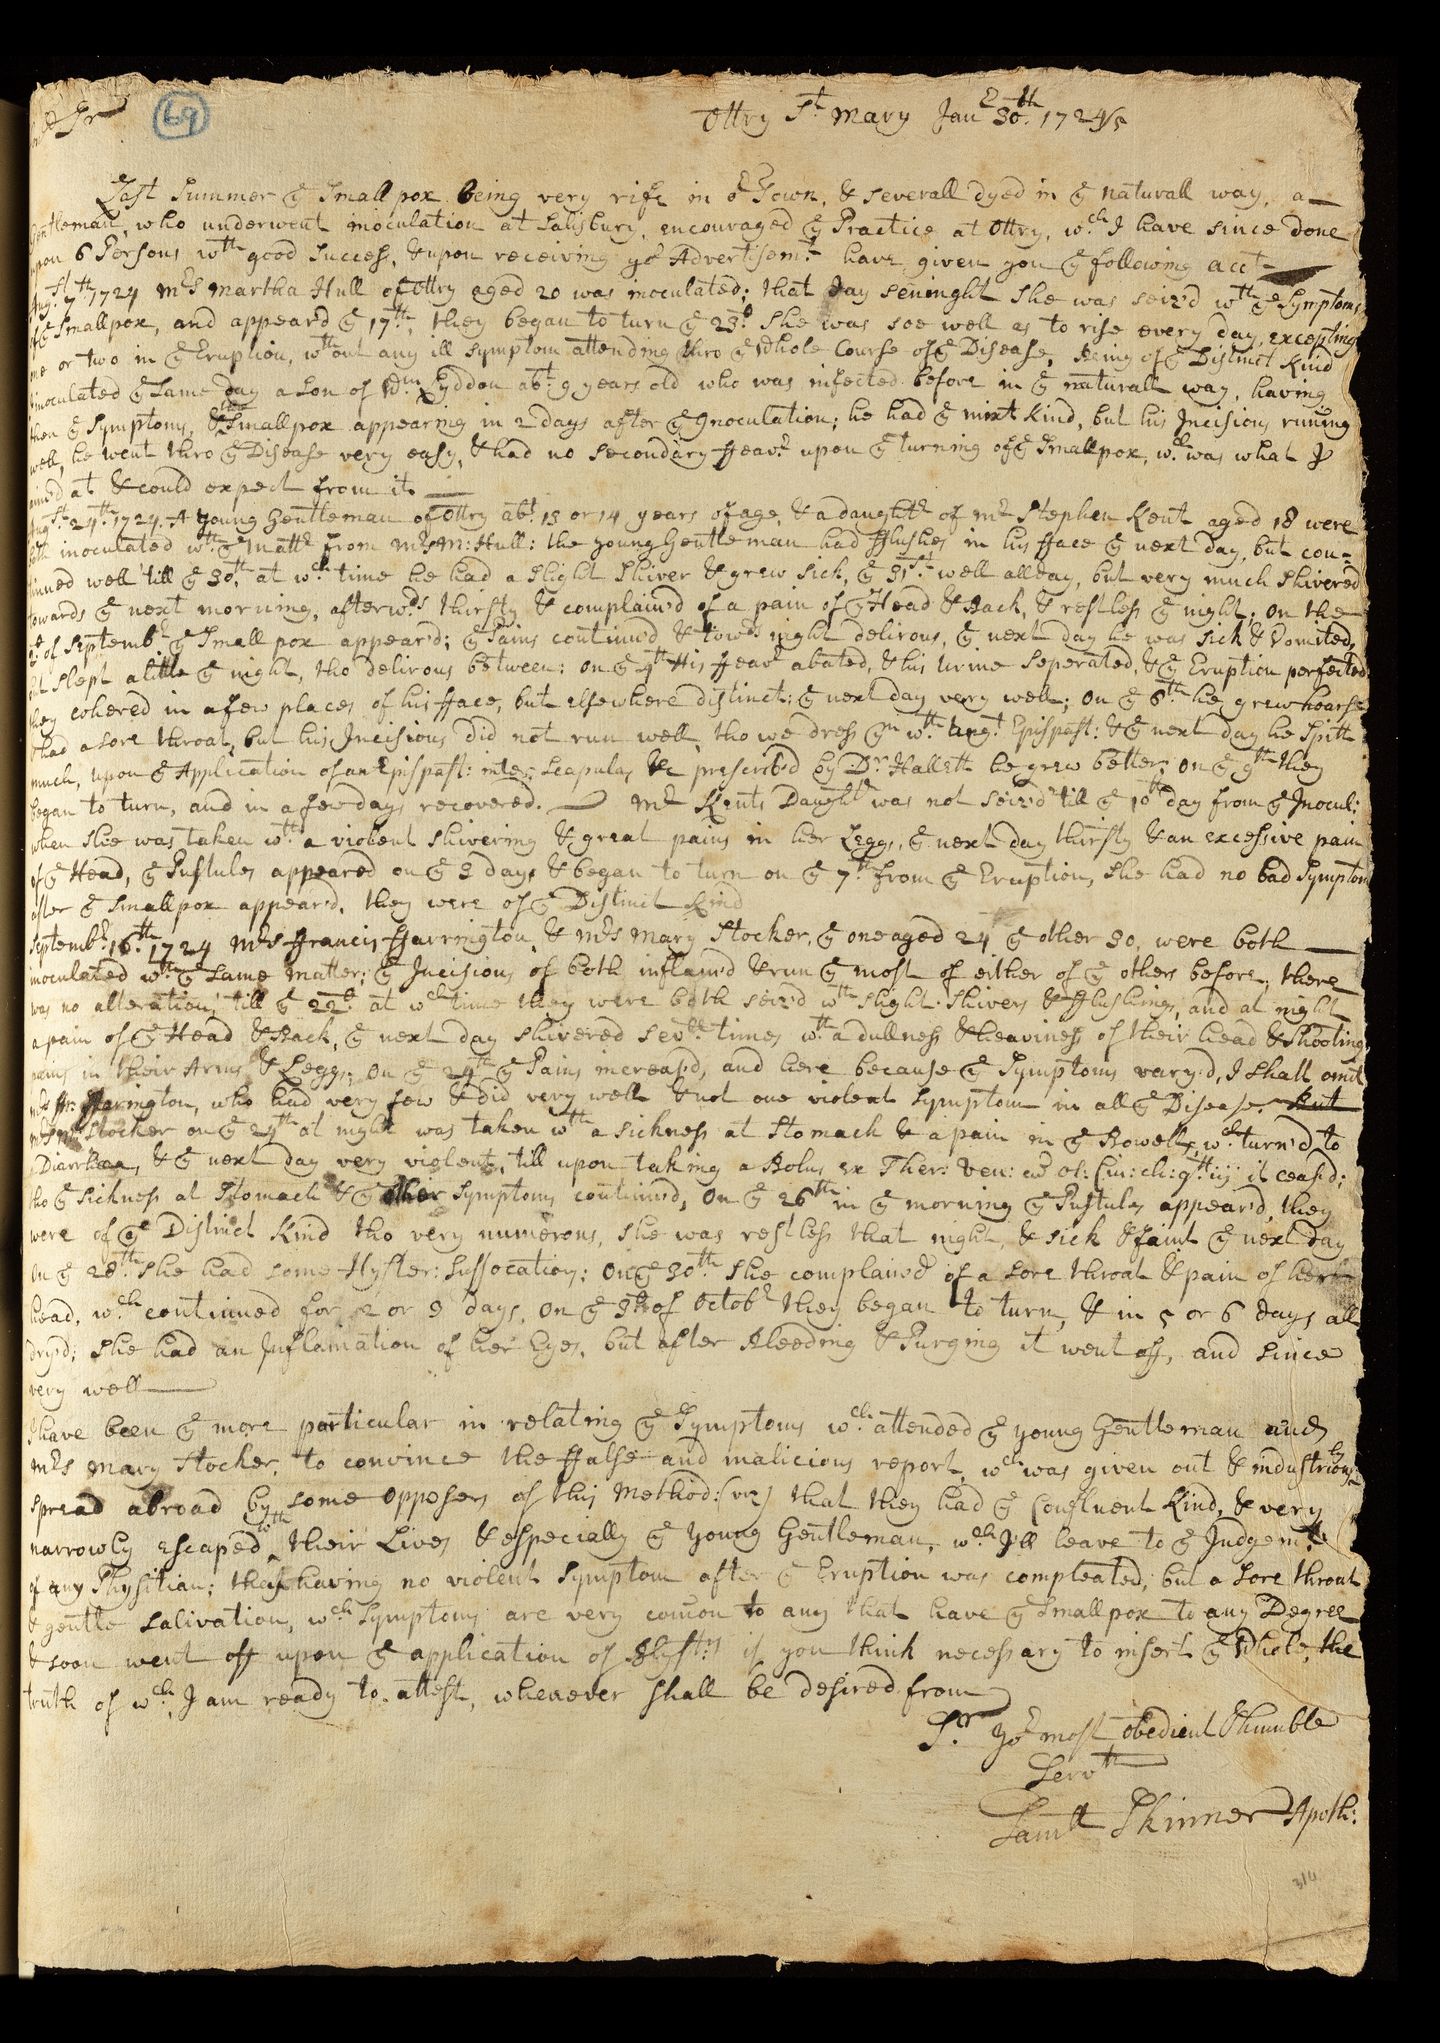 Sr
69
Ottry St. Mary Janr 30th. 1724/5
Last Summer ye Smallpox being very rife in or Town, & severall dyed in ye naturall way, a
Gentleman, who underwent inoculation at Salisbury, encouraged ye Practice at Ottry, wch. I have since done
upon 6 Persons wth good Success, & upon receiving yor Advertisemt. have given you ye following acct.
Augst. 7th. 1724 Mrs Martha Hull of Ottry aged 20 was inoculated; that day seninght She was seiz'd wth ye Symptoms
of ye Smallpox, and appear'd ye 17th; they began to turn ye 23d. She was soe well as to rise every day, excepting
one or two in ye Eruption, wthout any ill symptom attending thro ye Whole Course of ye Disease, being of ye Distinct Kind
I inoculated ye Same day a Son of Wm. Lyddon abt. 9 years old who was infected before in ye naturall way, having
then ye Symptoms, & the Smallpox appearing in 2 days after ye Inoculation; he had ye mixt Kind, but his Incisions runing
well, he went thro ye Disease very easy, & had no secondary Feavr. upon ye turning of ye Smallpox, wch. was what I
aim'd at & could expect from it.
Augst. 24th. 1724. A Young Gentleman of Ottry abt. 13 or 14 years of age, & a daughtr of mr Stephen Kent aged 18 were
both inoculated wth. ye Mattr from Mrs M: Hull: the young Gentleman had Flushes in his Face ye next day, but con-
tinued well till ye 30th. at wch time he had a slight Shiver & grew sick, ye 31st. well all day, but very much Shivered
towards ye next morning, afterwds thirsty & complain'd of a pain of ye Head & Back, & restless ye night; On the
2d of Septembr ye Small pox appear'd; ye Pains continu'd & towds night delirous, ye next day he was sick & Vomited,
but Slept a little ye night, tho delirous between: on ye 4th His Feavr abated, & his urine seperated, & ye Eruption perfected
they cohered in a few places of his Face, but elsewhere distinct: ye next day very well; On ye 6th. he grew hoarse
& had a sore throat, but his Incisions did not run well, tho we dress ym wth. ungt. Epispast: & ye next day he Spitt
much, upon ye Application of an Epispast: inter Scapulas &c prescrib'd by Dr Hallett he grew better; on ye 9th they
began to turn, and in a few days recovered. Mr Kents Daughtr was not seiz'd till ye 10th day from ye Inocul:
when she was taken wth. a violent shivering & great pains in her Leggs, ye next day thirsty & an excessive pain
of ye Head, ye Pustules appeared on ye 3 day, & began to turn on ye 7th. from ye Eruption, She had no bad Symptom
after ye Smallpox appear'd, they were of ye Distinct Kind
Septembr. 16th. 1724 Mrs Francis Farrington, & Mrs Mary Stocker, ye one aged 24 ye other 30, were both
inoculated wth ye same matter; ye Incisions of both inflam'd & run ye most of either of ye others before, there
was no alteration till ye 22d at wch time they were both seiz'd wth slight Shivers & Flushings, and at night
a pain of ye Head & Back, ye next day shivered sevll times wth. a dullness & heaviness of their head & shooting
pains in their Arms & Leggs; On ye 24th ye Pains increas'd, and here because ye Symptoms vary'd, I shall omit
Mrs Fr: Farrington, who had very few & did very well & not one violent Symptom in all ye Disease. But
Mrs M: Stocker on ye 24th at night was taken wth a sickness at Stomach & a pain in ye Bowells, wch. turn'd to
a Diarrhea, & ye next day very violent, till upon taking a Bolus ex Ther: Ven: cum ol: Cin: ch: gtt iij it ceas'd;
tho ye sickness at Stomach & ye other symptoms continu'd, On ye 26th in ye morning ye Pustules appear'd, they
were of ye Distinct Kind tho very numerous, she was restless that night, & sick & faint ye next day
On ye 28th. she had some Hyster: Suffocation; On ye 30th. She complain'd of a sore throat & pain of her
head, wch continued for 2 or 3 days, On ye 3d of Octobr they began to turn, & in 5 or 6 days all
dry'd; she had an Inflamation of her Eyes, but after Bleeding & Purging it went off, and since
very well
I have been ye more particular in relating ye Symptoms wch. attended ye young Gentleman and
Mrs Mary Stocker, to convince the False and malicious report, wch was given out & industriously
spread abroad by some Opposers of this Method: (viz) that they had ye Confluent Kind, & very
narrowly escaped wth their Lives & especially ye Young Gentleman, wch I'll leave to ye Judgemt.
of any Physitian; they having no violent Symptom after ye Eruption was compleated, but a Sore throat
& gentle salivation, wch. Symptoms are very com̄on to any that have ye Smallpox to any Degree
& soon went off upon ye application of Blystrs if you think necessary to insert ye Whole, the
truth of wch. I am ready to attest, whenever shall be desired from
Sr. yor most obedient & humble
Servtt
Samll Skinner Apoth:
310